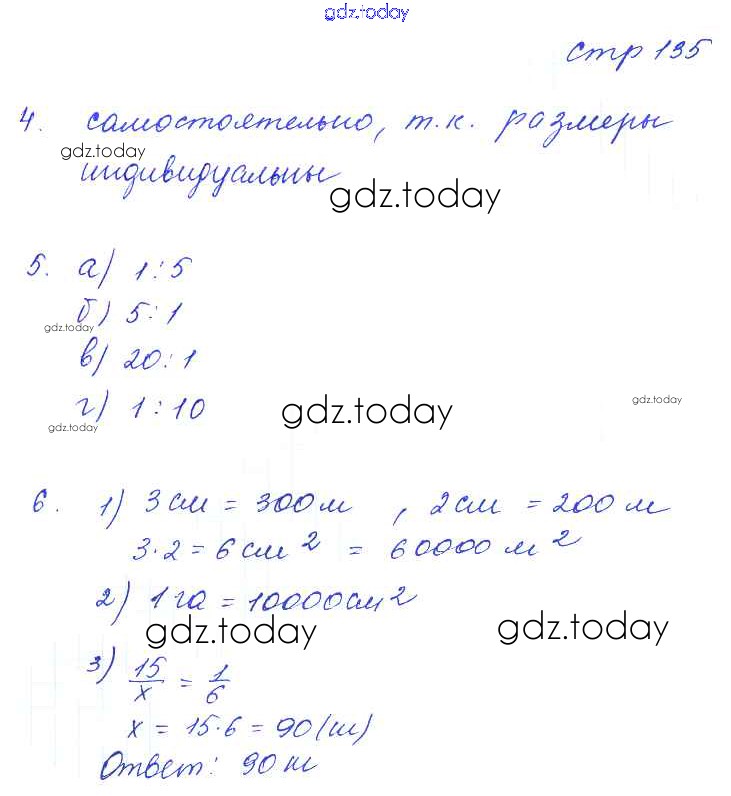 gdz.today
стр 135
4. самостоятельно, т.к. размеры
gdz.today
индивидуальны
gdz.today
5. а) 1:5
б) 5:1
gdz.today
в) 20:1
г) 1:10
gdz.today
gdz.today
gdz.today
6. 1) 3см = 300м , 2см = 200м
3·2 = 6см² = 60000м²
2) 1га = 10000см²
gdz.today
gdz.today
3) 15/x = 1/6
x = 15·6 = 90(ш)
Ответ: 90ш